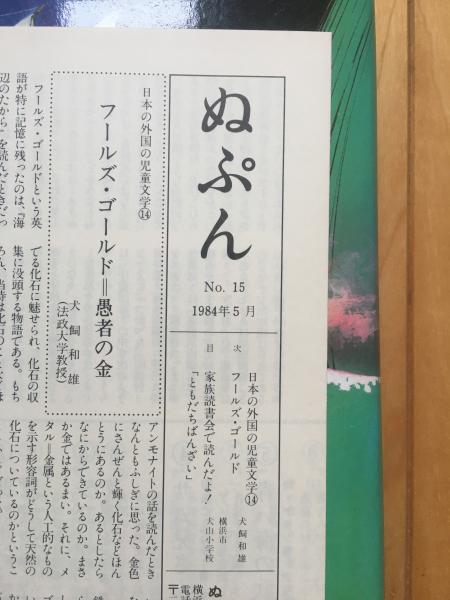 ぬぷん
No. 15
1984年5月
目次
日本の外国の児童文学⑭
フールズ・ゴールド
犬飼和雄
家族読書会で読んだよ!
「ともだちばんざい」
横浜市
犬山小学校
日本の外国の児童文学⑭
フールズ・ゴールド=愚者の金
犬飼和雄
(法政大学教授)
フールズ・ゴールドという英
語が特に記憶に残ったのは、『海
辺のたから』を読んだときだっ
でる化石に魅せられ、化石の収
集に没頭する物語である。もち
アンモナイトの話を読んだとき
なんともふしぎに思った。金色
にさんぜんと輝く化石などほん
とうにあるのか。あるとしたら
なにからできているのか。まさ
か金ではあるまい。それに、メ
タル=金属という人工的なもの
を示す形容詞がどうして天然の
化石についているのかというこ